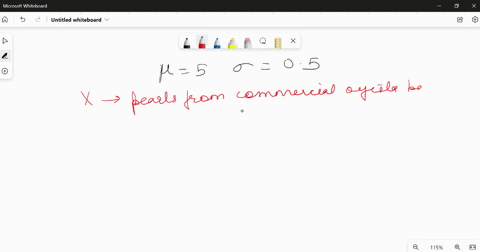 Microsoft Whiteboard
Untitled whiteboard
μ = 5 σ = 0.5
X → pearls from commercial oyster be
115%